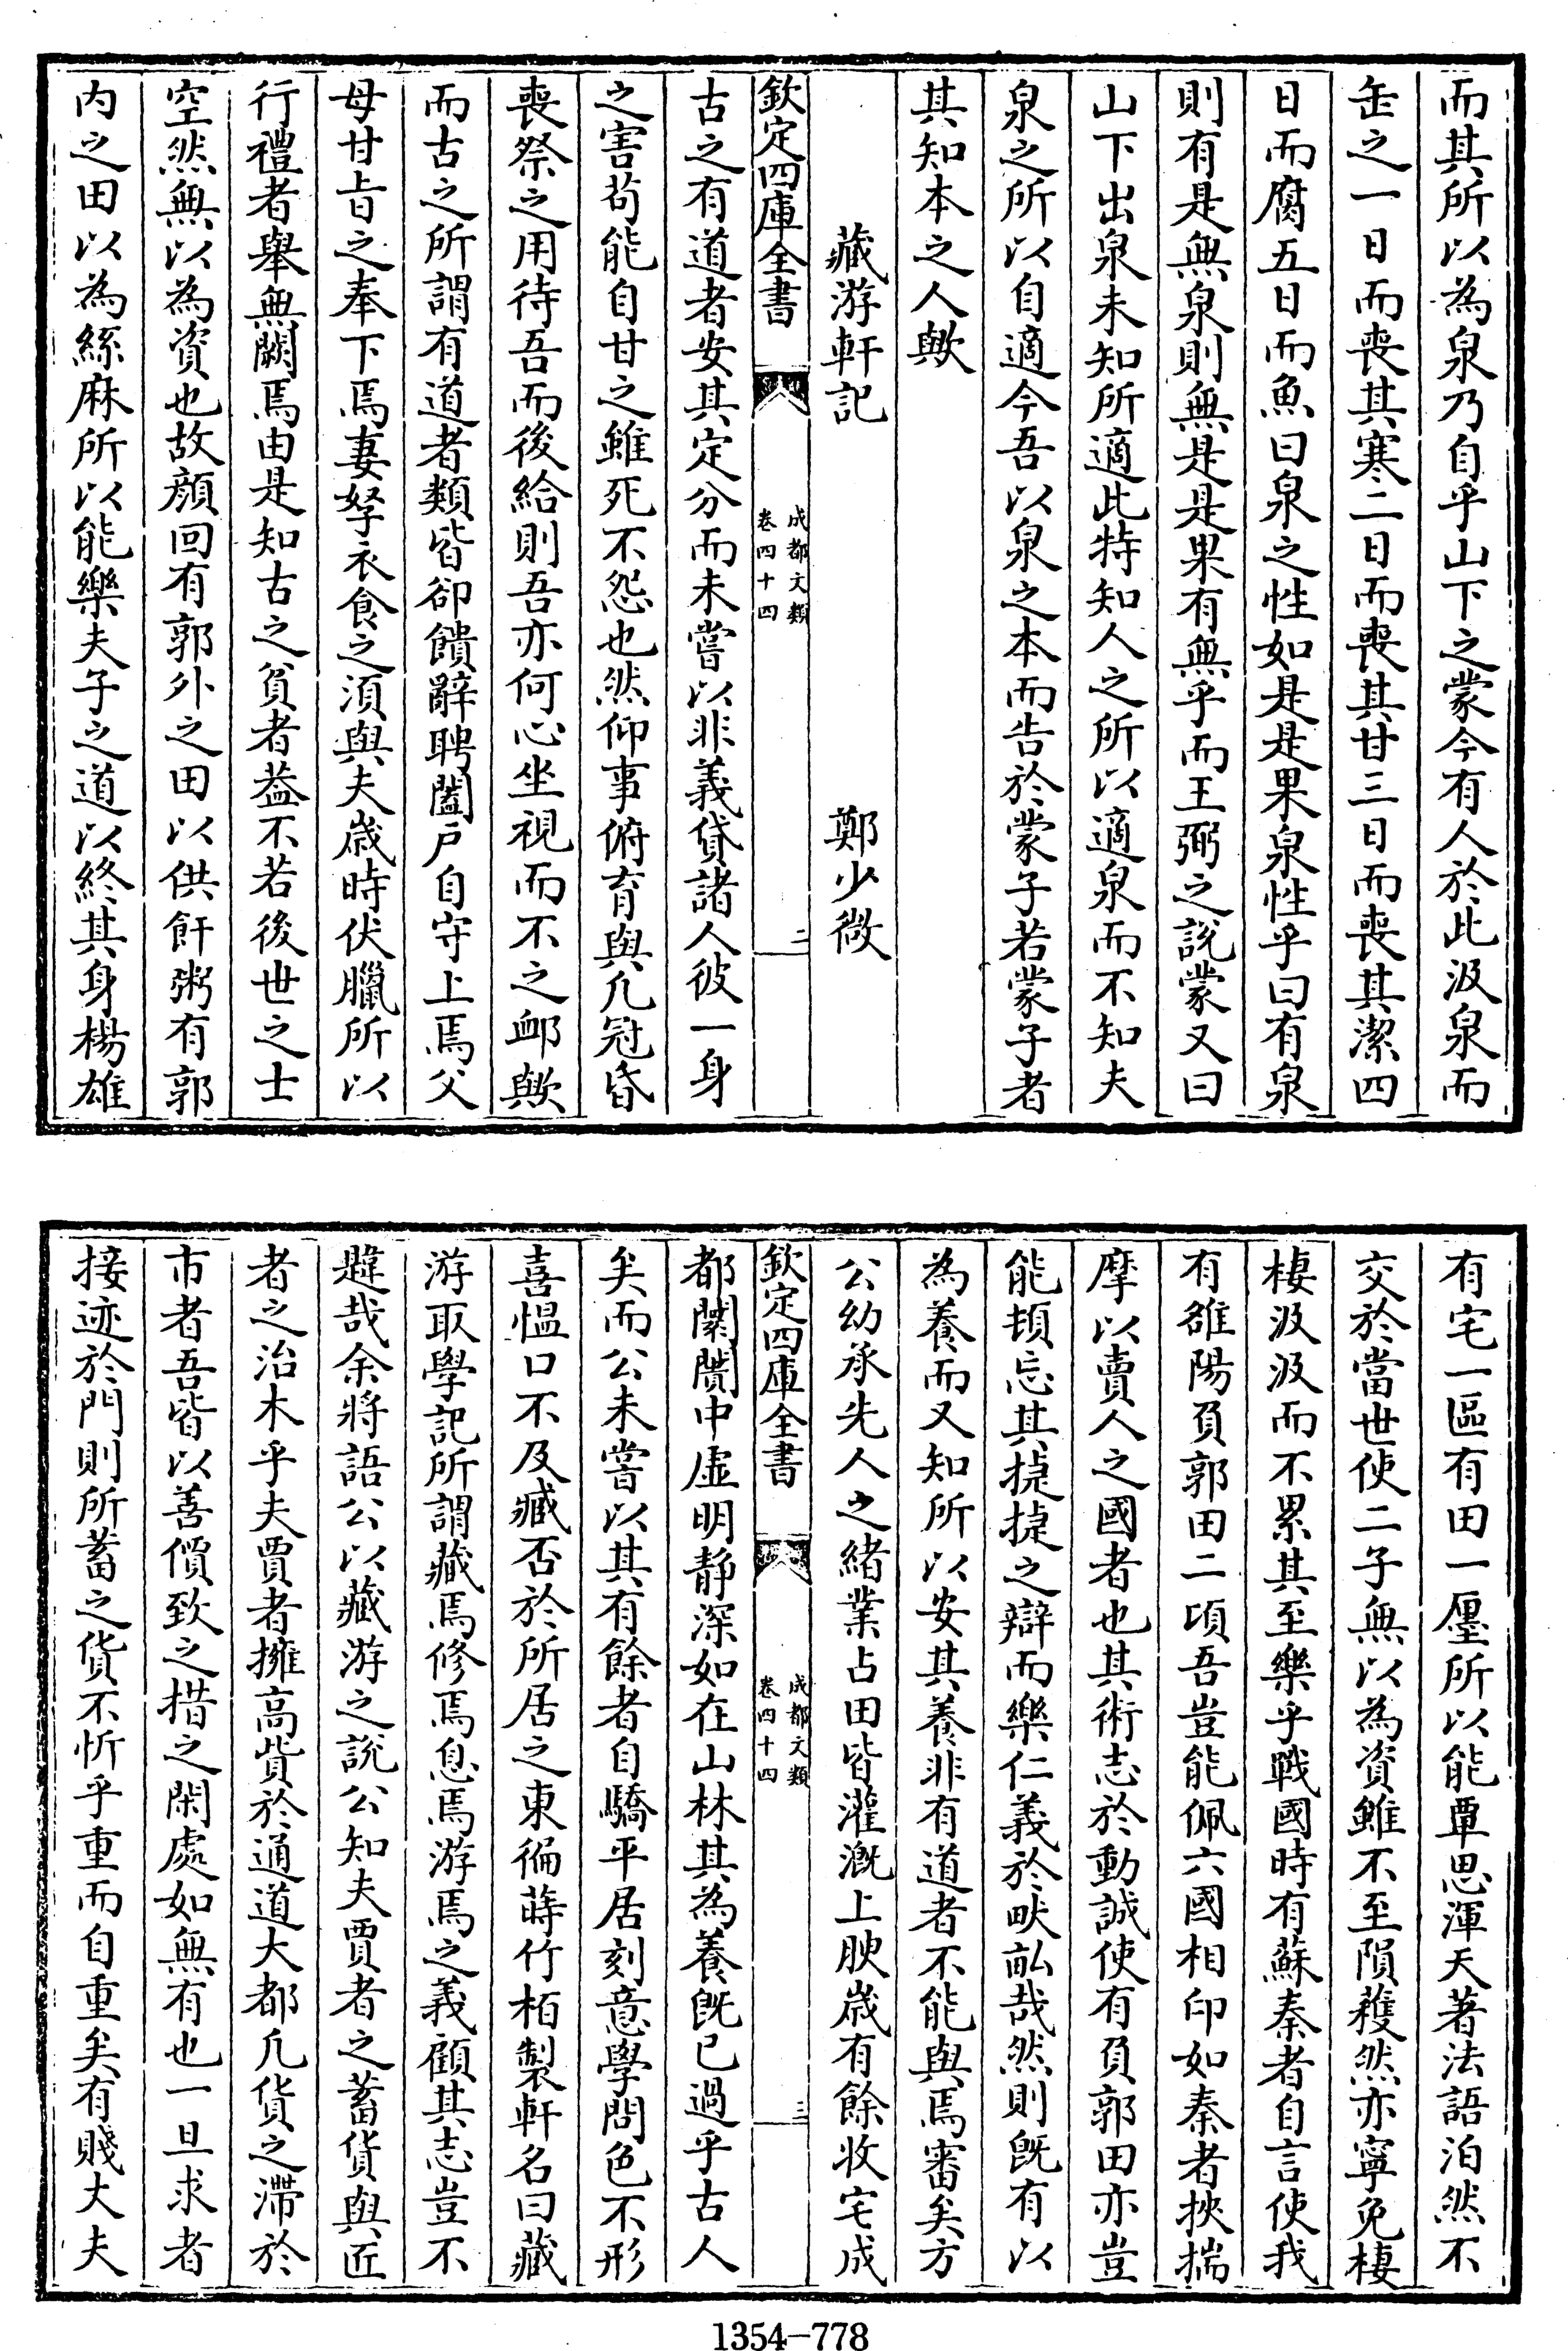 而其所以為泉乃自乎山下之蒙今有人於此汲泉而
缶之一日而喪其寒二日而喪其甘三日而喪其潔四
日而腐五日而魚曰泉之性如是是果泉性乎曰有泉
則有是無泉則無是是果有無乎而王弼之說蒙又曰
山下出泉未知所適此特知人之所以適泉而不知夫
泉之所以自適今吾以泉之本而告於蒙子若蒙子者
其知本之人歟
藏游軒記 鄭少微
欽定四庫全書 成都文類 卷四十四 二
古之有道者安其定分而未嘗以非義貸諸人彼一身
之害苟能自甘之雖死不怨也然仰事俯育與凡冠昏
喪祭之用待吾而後給則吾亦何心坐視而不之卹歟
而古之所謂有道者類皆卻饋辭聘闔戶自守上焉父
母甘旨之奉下焉妻孥衣食之須與夫歲時伏臘所以
行禮者舉無闕焉由是知古之貧者葢不若後世之士
空然無以為資也故顔回有郭外之田以供飦粥有郭
内之田以為絲麻所以能樂夫子之道以終其身楊雄
有宅一區有田一㕓所以能覃思渾天著法語泊然不
交於當世使二子無以為資雖不至隕穫然亦寧免棲
棲汲汲而不累其至樂乎戰國時有蘇秦者自言使我
有雒陽負郭田二頃吾豈能佩六國相印如秦者挾揣
摩以賣人之國者也其術志於動誠使有負郭田亦豈
能頓忘其捷捷之辯而樂仁義於畎畝哉然則旣有以
為養而又知所以安其養非有道者不能與焉審矣方
公幼承先人之緒業占田皆灌溉上腴歲有餘收宅成
欽定四庫全書 成都文類 卷四十四 三
都闤闠中虛明靜深如在山林其為養旣已過乎古人
矣而公未嘗以其有餘者自驕平居刻意學問色不形
喜愠口不及臧否於所居之東徧蒔竹栢製軒名曰藏
游取學記所謂藏焉修焉息焉游焉之義顧其志豈不
韙哉余將語公以藏游之說公知夫賈者之蓄貨與匠
者之治木乎夫賈者擁高貲於通道大都凡貨之滯於
市者吾皆以善價致之措之閑處如無有也一旦求者
接迹於門則所蓄之貨不忻乎重而自重矣有賤大夫
1354—778